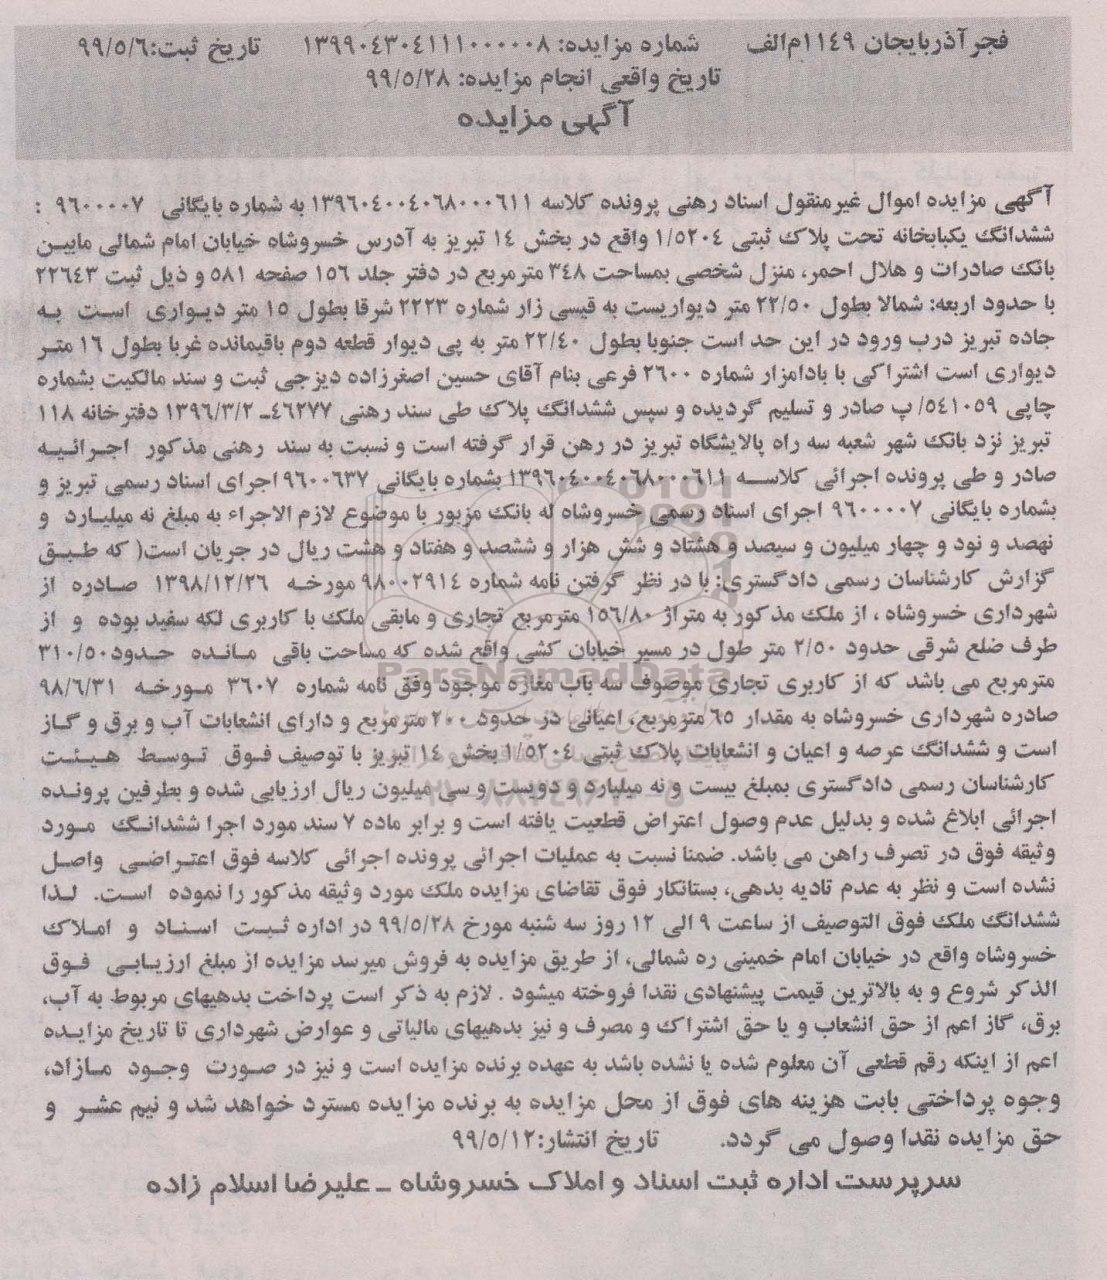 فجر آذربایجان ۱۱۴۹م/الف شماره مزایده: ۱۳۹۹۰۴۳۰۴۱۱۱۰۰۰۰۰۸ تاریخ ثبت:۹۹/۵/۶
تاریخ واقعی انجام مزایده: ۹۹/۵/۲۸
آگهی مزایده
آگهی مزایده اموال غیرمنقول اسناد رهنی پرونده کلاسه ۱۳۹۶۰۴۰۰۴۰۶۸۰۰۰۶۱۱ به شماره بایگانی ۹۶۰۰۰۰۷ :
ششدانگ یکبابخانه تحت پلاک ثبتی ۱/۵۲۰۴ واقع در بخش ۱۴ تبریز به آدرس خسروشاه خیابان امام شمالی مابین
بانک صادرات و هلال احمر، منزل شخصی بمساحت ۳۴۸ مترمربع در دفتر جلد ۱۵۶ صفحه ۵۸۱ و ذیل ثبت ۲۲۶۴۳
با حدود اربعه: شمالا بطول ۲۲/۵۰ متر دیواریست به قیسی زار شماره ۲۲۲۳ شرقا بطول ۱۵ متر دیواری است به
جاده تبریز درب ورود در این حد است جنوبا بطول ۲۲/۴۰ متر به پی دیوار قطعه دوم باقیمانده غربا بطول ۱۶ متر
دیواری است اشتراکی با بادامزار شماره ۲۶۰۰ فرعی بنام آقای حسین اصغرزاده دیزجی ثبت و سند مالکیت بشماره
چاپی ۵۴۱۰۵۹/ پ صادر و تسلیم گردیده و سپس ششدانگ پلاک طی سند رهنی ۴۶۲۷۷ـ ۱۳۹۶/۳/۲ دفترخانه ۱۱۸
تبریز نزد بانک شهر شعبه سه راه پالایشگاه تبریز در رهن قرار گرفته است و نسبت به سند رهنی مذکور اجرائیه
صادر و طی پرونده اجرائی کلاسه ۱۳۹۶۰۴۰۰۴۰۶۸۰۰۰۶۱۱ بشماره بایگانی ۹۶۰۰۶۳۷ اجرای اسناد رسمی تبریز و
بشماره بایگانی ۹۶۰۰۰۰۷ اجرای اسناد رسمی خسروشاه له بانک مزبور با موضوع لازم الاجراء به مبلغ نه میلیارد و
نهصد و نود و چهار میلیون و سیصد و هشتاد و شش هزار و ششصد و هفتاد و هشت ریال در جریان است( که طبق
گزارش کارشناسان رسمی دادگستری: با در نظر گرفتن نامه شماره ۹۸۰۰۲۹۱۴ مورخه ۱۳۹۸/۱۲/۲۶ صادره از
شهرداری خسروشاه ، از ملک مذکور به متراژ ۱۵۶/۸۰ مترمربع تجاری و مابقی ملک با کاربری لکه سفید بوده و از
طرف ضلع شرقی حدود ۲/۵۰ متر طول در مسیر خیابان کشی واقع شده که مساحت باقی مانده حدود ۳۱۰/۵۰
مترمربع می باشد که از کاربری تجاری موصوف سه باب مغازه موجود وفق نامه شماره ۳۶۰۷ مورخه ۹۸/۶/۳۱
صادره شهرداری خسروشاه به مقدار ۶۵ مترمربع، اعیانی در حدود ۲۰۰ مترمربع و دارای انشعابات آب و برق و گاز
است و ششدانگ عرصه و اعیان و انشعابات پلاک ثبتی ۱/۵۲۰۴ بخش ۱۴ تبریز با توصیف فوق توسط هیئت
کارشناسان رسمی دادگستری بمبلغ بیست و نه میلیارد و دویست و سی میلیون ریال ارزیابی شده و بطرفین پرونده
اجرائی ابلاغ شده و بدلیل عدم وصول اعتراض قطعیت یافته است و برابر ماده ۷ سند مورد اجرا ششدانگ مورد
وثیقه فوق در تصرف راهن می باشد. ضمنا نسبت به عملیات اجرائی پرونده اجرائی کلاسه فوق اعتراضی واصل
نشده است و نظر به عدم تادیه بدهی، بستانکار فوق تقاضای مزایده ملک مورد وثیقه مذکور را نموده است. لذا
ششدانگ ملک فوق التوصیف از ساعت ۹ الی ۱۲ روز سه شنبه مورخ ۹۹/۵/۲۸ در اداره ثبت اسناد و املاک
خسروشاه واقع در خیابان امام خمینی ره شمالی، از طریق مزایده به فروش میرسد مزایده از مبلغ ارزیابی فوق
الذکر شروع و به بالاترین قیمت پیشنهادی نقدا فروخته میشود . لازم به ذکر است پرداخت بدهیهای مربوط به آب،
برق، گاز اعم از حق انشعاب و یا حق اشتراک و مصرف و نیز بدهیهای مالیاتی و عوارض شهرداری تا تاریخ مزایده
اعم از اینکه رقم قطعی آن معلوم شده یا نشده باشد به عهده برنده مزایده است و نیز در صورت وجود مازاد،
وجوه پرداختی بابت هزینه های فوق از محل مزایده به برنده مزایده مسترد خواهد شد و نیم عشر و
حق مزایده نقدا وصول می گردد. تاریخ انتشار:۹۹/۵/۱۲
سرپرست اداره ثبت اسناد و املاک خسروشاه ـ علیرضا اسلام زاده
ParsNamadData